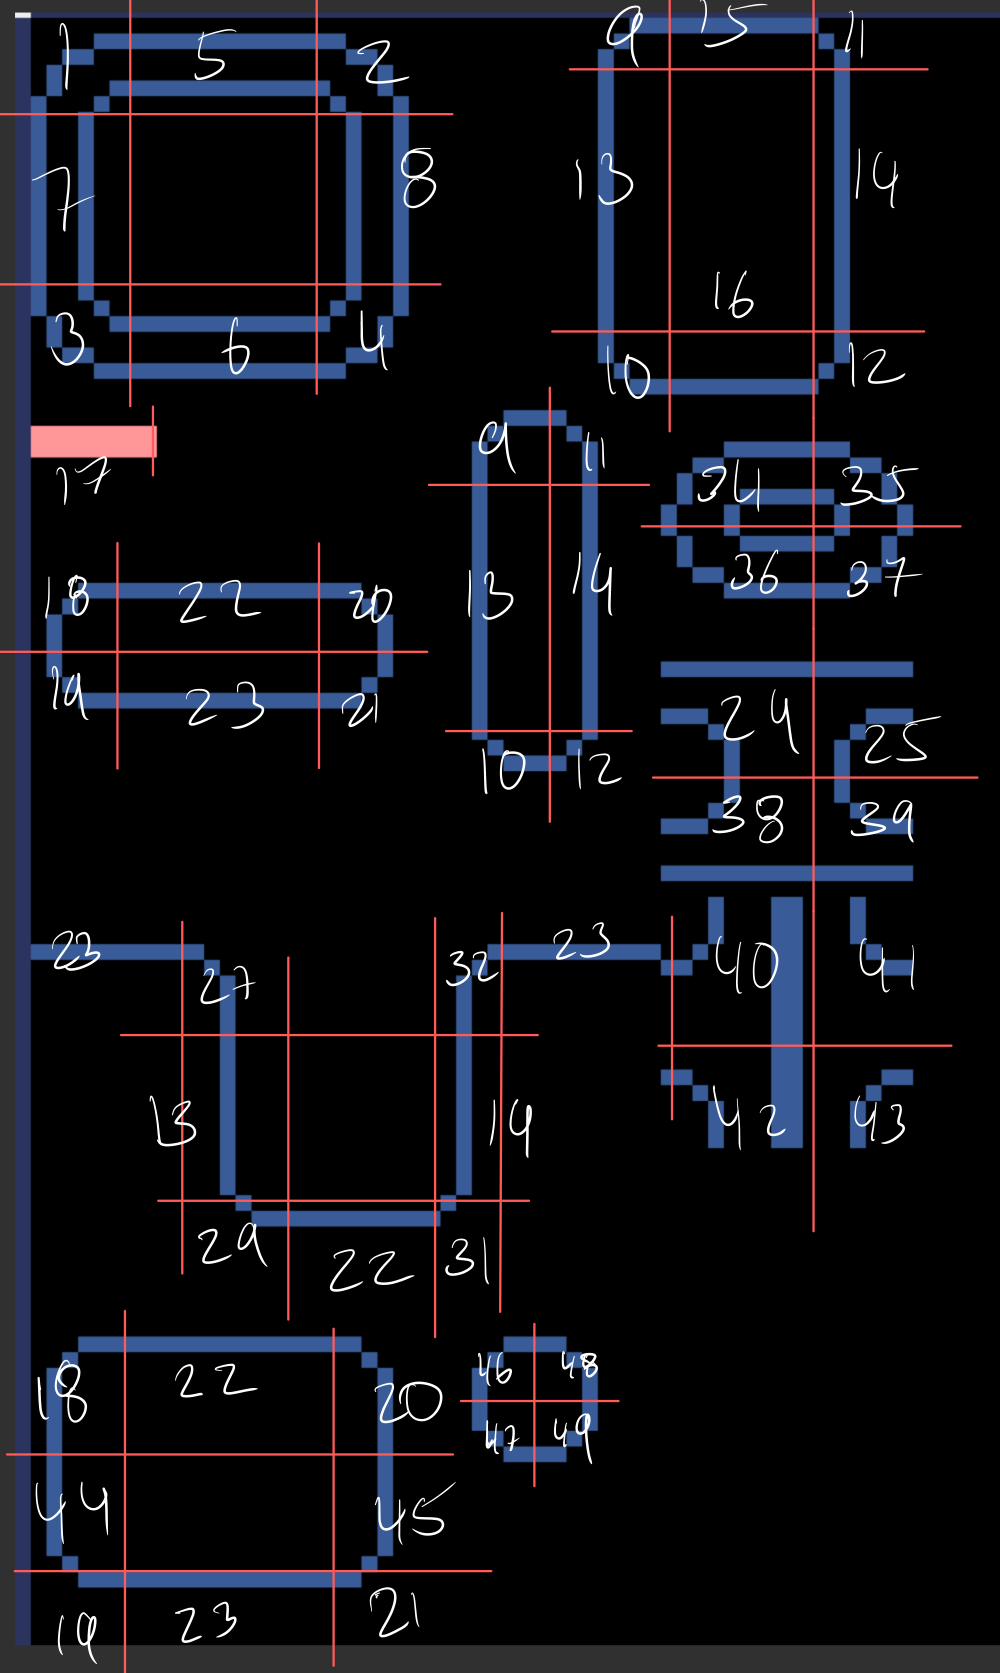 1 5 2
7 8
3 6 4
9 15 11
13 14
16
10 12
17
9 11
13 14
10 12
34 35
36 37
18 22 20
19 23 21
24 25
38 39
23 27 32 23
40 41
13 14
42 43
29 22 31
18 22 20
44 45
19 23 21
46 48
47 49